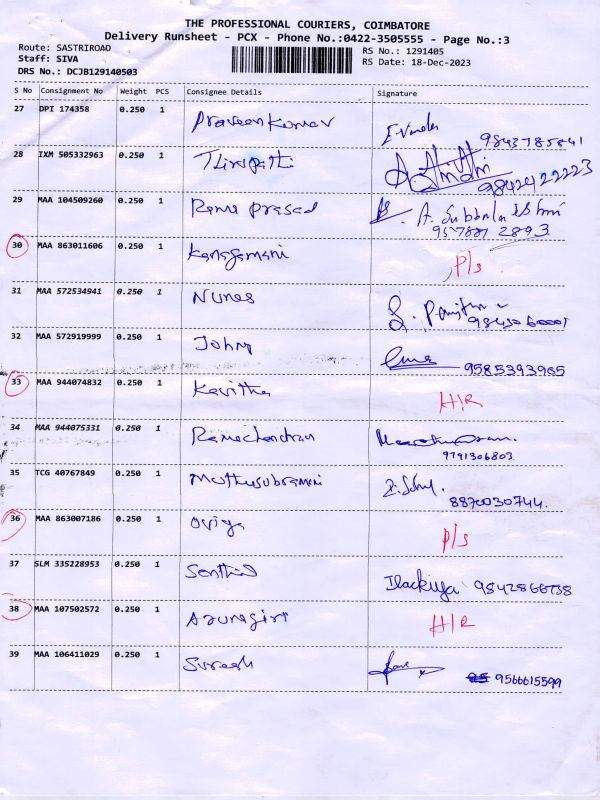 THE PROFESSIONAL COURIERS, COIMBATORE
Delivery Runsheet - PCX - Phone No.:0422-3505555 - Page No.:3
Route: SASTRIROAD RS No.: 1291405
Staff: SIVA RS Date: 18-Dec-2023
DRS No.: DCJB129140503
S No Consignment No Weight PCS Consignee Details Signature
27 DPI 174358 0.250 1 Praveen Kumar
28 IXM 505332963 0.250 1 Thirupathi 9842422223
29 MAA 104509260 0.250 1 Ramu prasad A. Subbulakshmi
30 MAA 863011606 0.250 1 Kanagamani P/s
31 MAA 572534941 0.250 1 Nunes
32 MAA 572919999 0.250 1 John 9585393965
33 MAA 944074832 0.250 1 Kavitha H/R
34 MAA 944075331 0.250 1 Ramachandran
9791306803
35 TCG 40767849 0.250 1 Muthusubramani
8870030744
36 MAA 863007186 0.250 1 Oviya P/s
37 SLM 335228953 0.250 1 Senthil Ilackiya
38 MAA 107502572 0.250 1 Arunagiri H/R
39 MAA 106411029 0.250 1 Suresh
9566615599